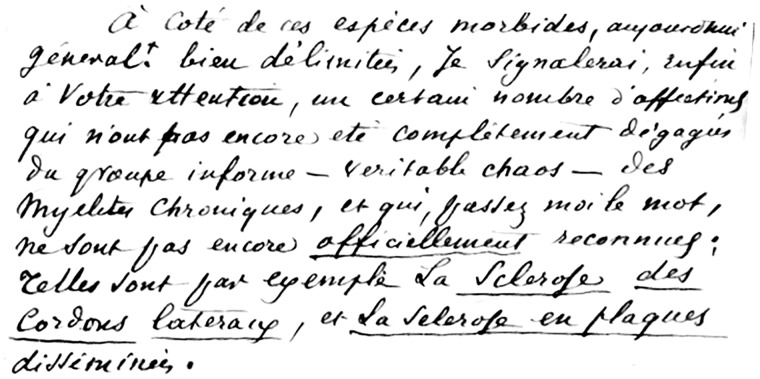 À coté de ces espèces morbides, aujourdhui
généralt. bien délimitées, Je signalerai, enfin
à votre attention, un certain nombre d'affections
qui n'ont pas encore eté complètement dégagées
du groupe informe — veritable chaos — des
Myelites Chroniques, et qui, passez moi le mot,
ne sont pas encore officiellement reconnues;
Telles sont par exemple La Sclerose des
Cordons lateraux, et La Sclerose en plaques
disséminées.